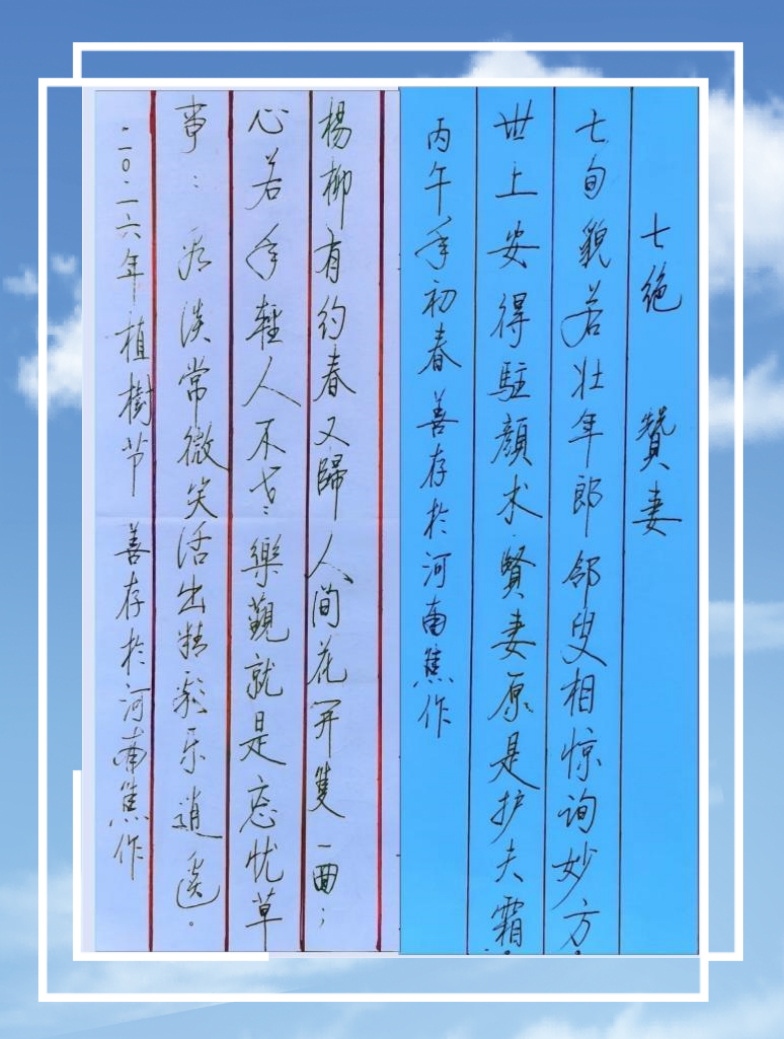 七绝 贊妻
七旬貌若壮年郎邻叟相惊询妙方
世上安得駐顔术.賢妻原是护夫霜.
丙午年初春善存於河南焦作
楊柳有约春又歸人间花开雙面；
心若年輕人不老樂觀就是忘忧草
事：淡常微笑活出精彩乐逍遥.
二〇二六年植樹节 善存於河南焦作